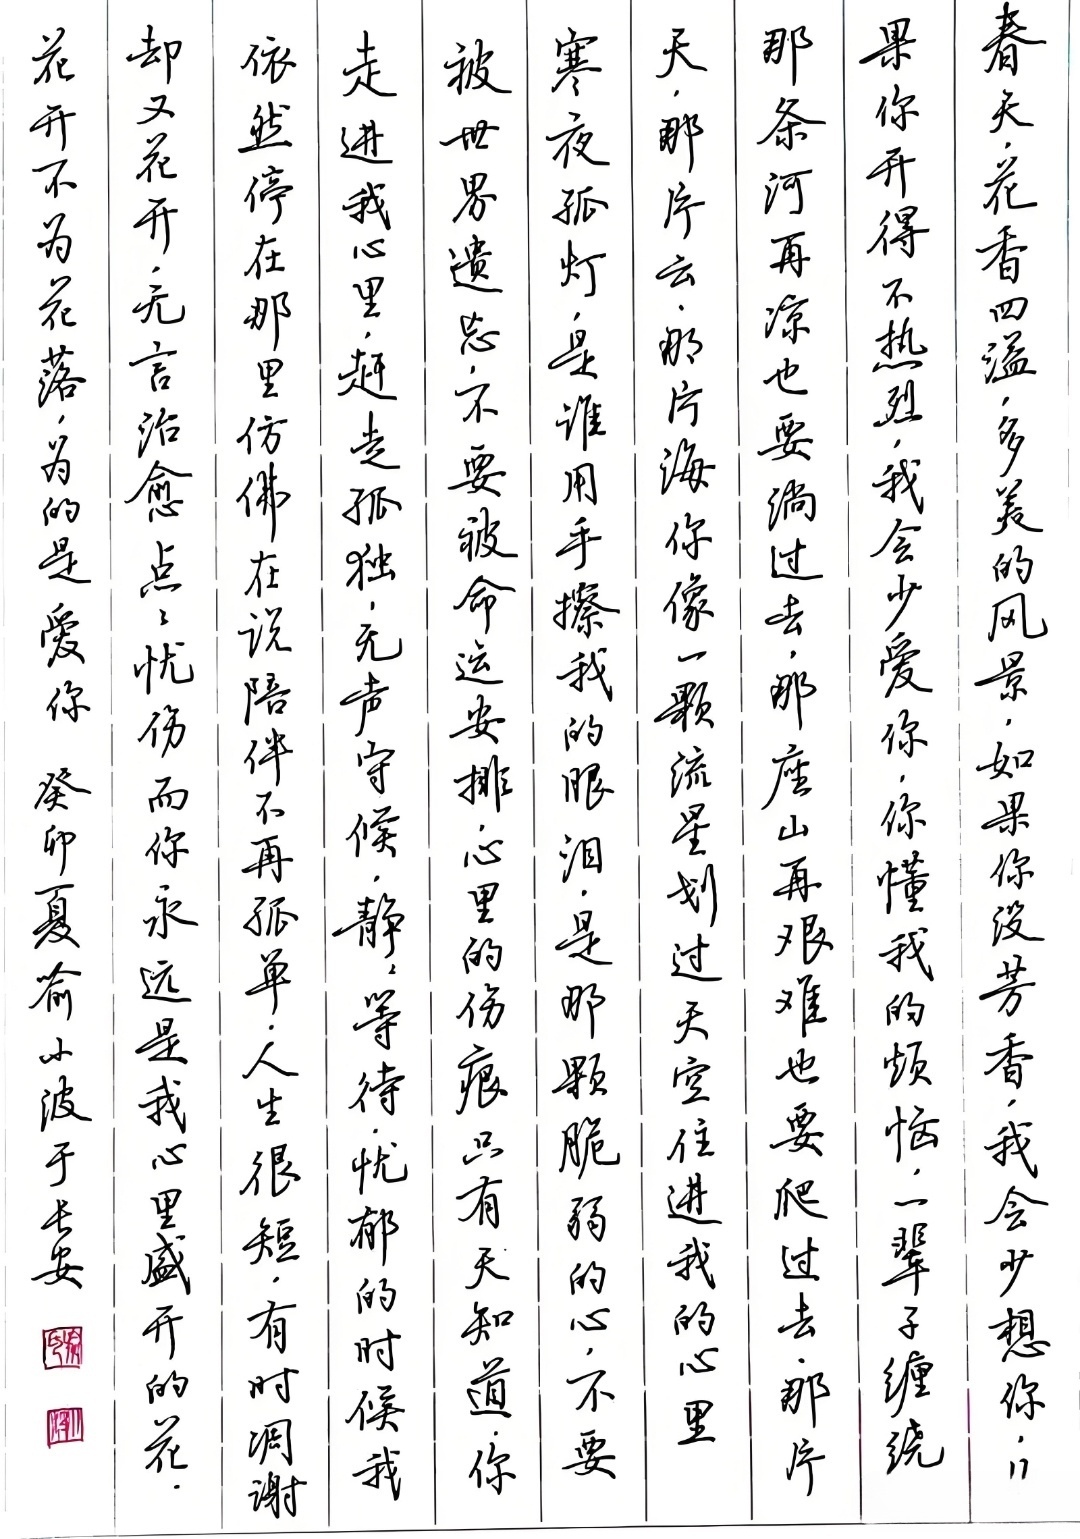 春天，花香四溢，多美的风景，如果你没芳香，我会少想你，
果你开得不热烈，我会少爱你，你懂我的烦恼，一辈子缠绕
那条河再凉也要淌过去，那座山再艰难也要爬过去，那片
天，那片云，那片海你像一颗流星划过天空住进我的心里
寒夜孤灯，是谁用手擦我的眼泪，是那颗脆弱的心，不要
被世界遗忘，不要被命运安排，心里的伤痕只有天知道，你
走进我心里，赶走孤独，无声守候，静々等待，忧郁的时候我
依然停在那里仿佛在说陪伴不再孤单，人生很短，有时凋谢
却又花开，无言治愈点々忧伤而你永远是我心里盛开的花．
花开不为花落，为的是爱你 癸卯夏喻小波于长安